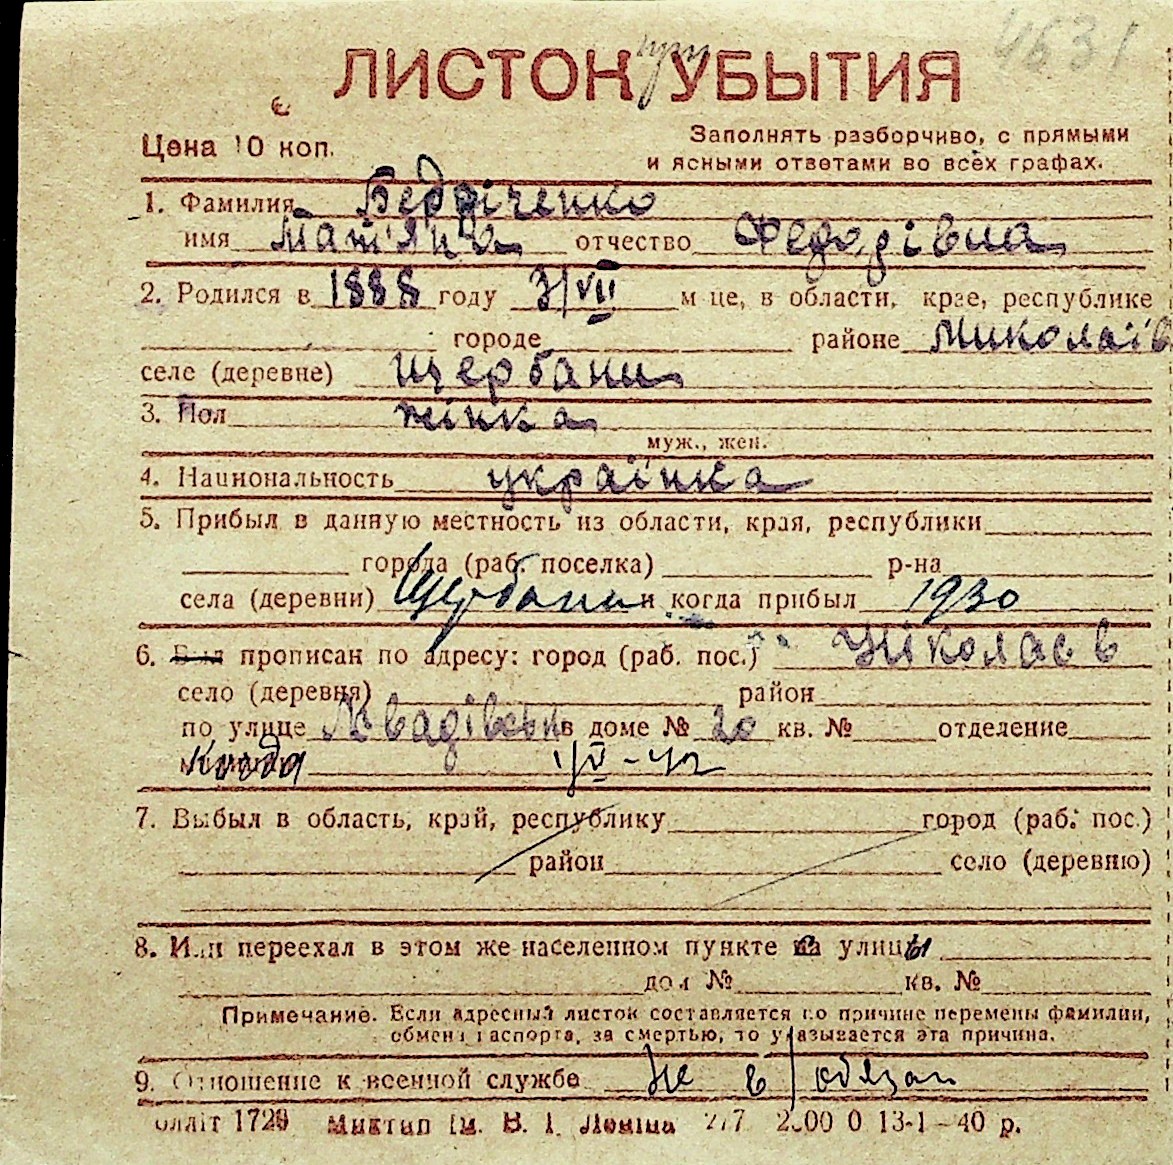 4631
ЛИСТОК при УБЫТИЯ
Цена 10 коп.
Заполнять разборчиво, с прямыми
и ясными ответами во всех графах.
1. Фамилия Бедріченко
имя Мат'яна отчество Федодівна
2. Родился в 1888 году 3/VII м-це, в области, крае, республике
городе районе Миколаїв
селе (деревне) Щербани
3. Пол жінка
муж., жен.
4. Национальность українка
5. Прибыл в данную местность из области, края, республики
города (раб. поселка) р-на
села (деревни) Щербани и когда прибыл 1930
6. Был прописан по адресу: город (раб. пос.) Ніколаєв
село (деревня) район
по улице в доме № 20 кв. № отделение
Когда
7. Выбыл в область, край, республику город (раб. пос.)
район село (деревню)
8. Или переехал в этом же населенном пункте с улицы
дом № кв. №
Примечание. Если адресный листок составляется по причине перемены фамилии,
обмена паспорта, за смертью, то указывается эта причина.
9. Отношение к военной службе не в/обязан
облліт 1729 Миктип ім. В. І. Леніна 217 2000 0 13-1-40 р.